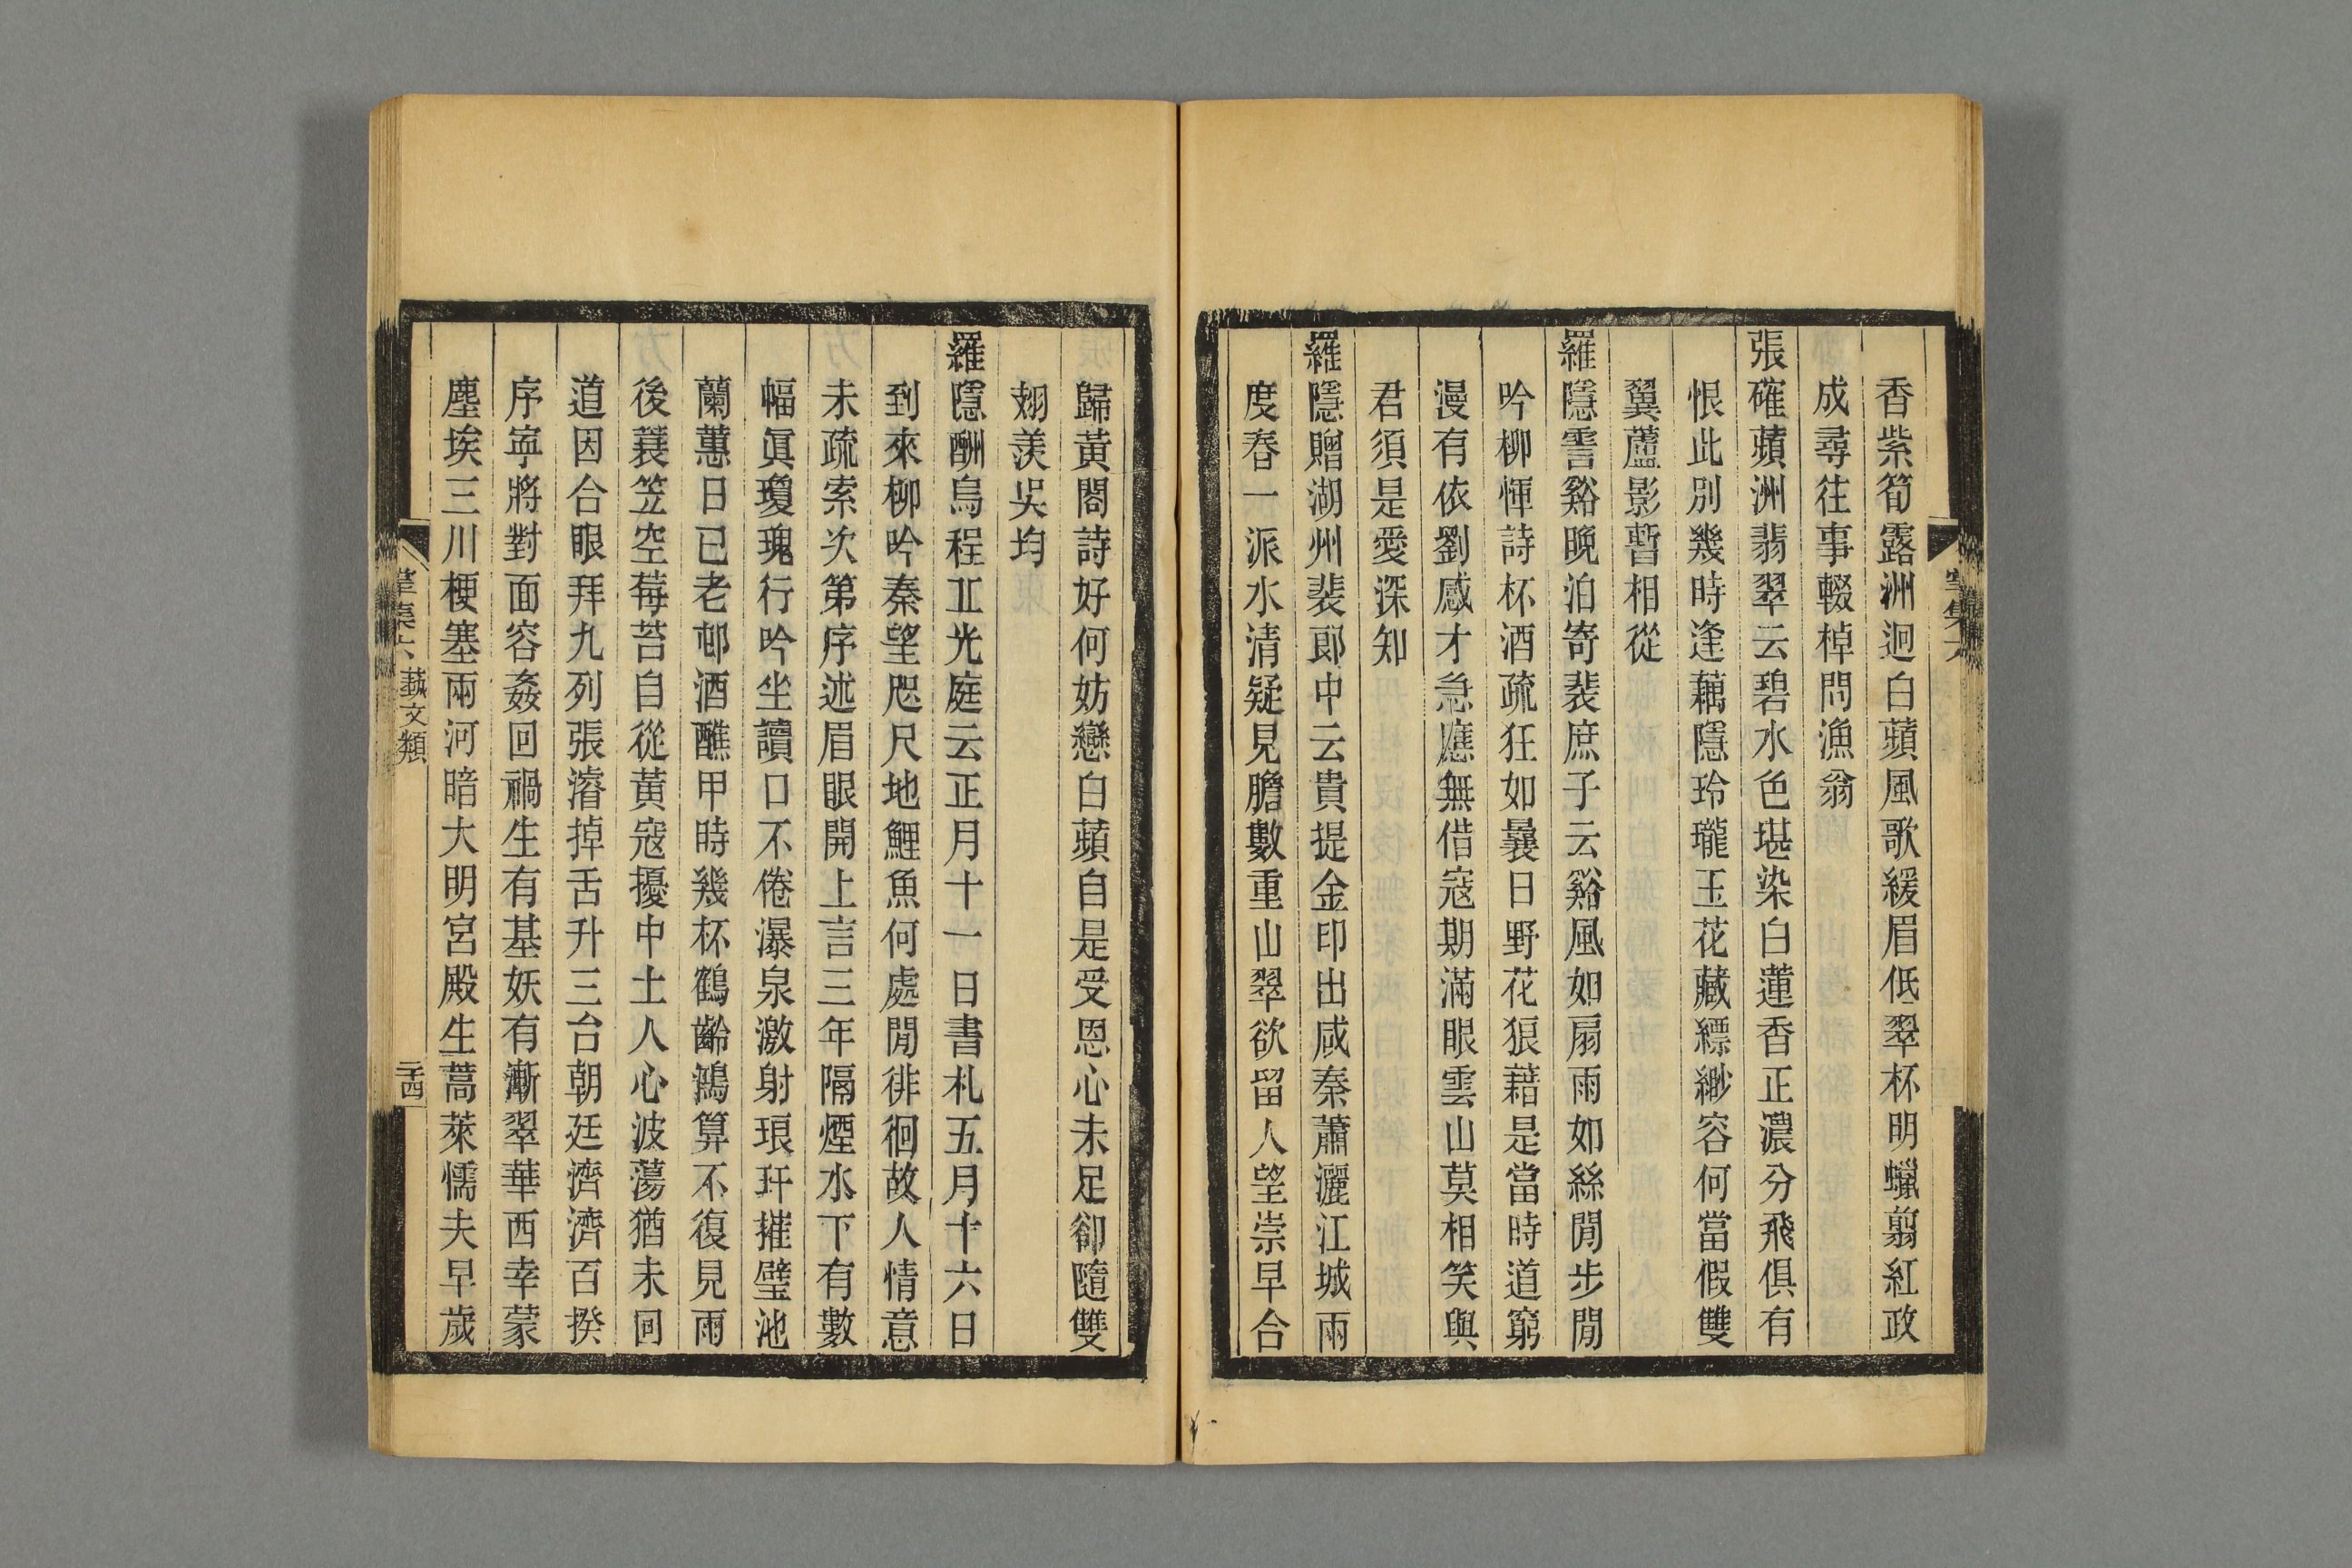 香紫筍露洲迥白蘋風歌緩眉低翠杯明蠟翦紅政
成尋往事輟棹問漁翁
張確蘋洲翡翠云碧水色堪染白蓮香正濃分飛俱有
恨此別幾時逢藕隱玲瓏玉花藏縹緲容何當假雙
翼蘆影暫相從
羅隱霅谿晚泊寄裴庶子云谿風如扇雨如絲閒步閒
吟柳惲詩杯酒疏狂如曩日野花狼藉是當時道窮
漫有依劉感才急應無借寇期滿眼雲山莫相笑與
君須是愛深知
羅隱贈湖州裴郎中云貴提金印出咸秦蕭灑江城兩
度春一派水清疑見膽數重山翠欲留人望崇早合
歸黃閣詩好何妨戀白蘋自是受恩心未足卻隨雙
翅羨吳均
羅隱酬烏程㐀光庭云正月十一日書札五月十六日
到來柳吟秦望咫尺地鯉魚何處閒徘徊故人情意
未疏索次第序述眉眼開上言三年隔煙水下有數
幅眞瓊瑰行吟坐讀口不倦瀑泉激射琅玕摧璧池
蘭蕙日已老邨酒醮甲時幾杯鶴齡鴻算不復見雨
後蓑笠空莓苔自從黃寇擾中土人心波蕩猶未回
道因合眼拜九列張濬掉舌升三台朝廷濟濟百揆
序寧將對面容姦回禍生有基妖有漸翠華西幸蒙
塵埃三川梗塞兩河暗大明宮殿生蒿萊懦夫早歲
集六 藝文類
二十四